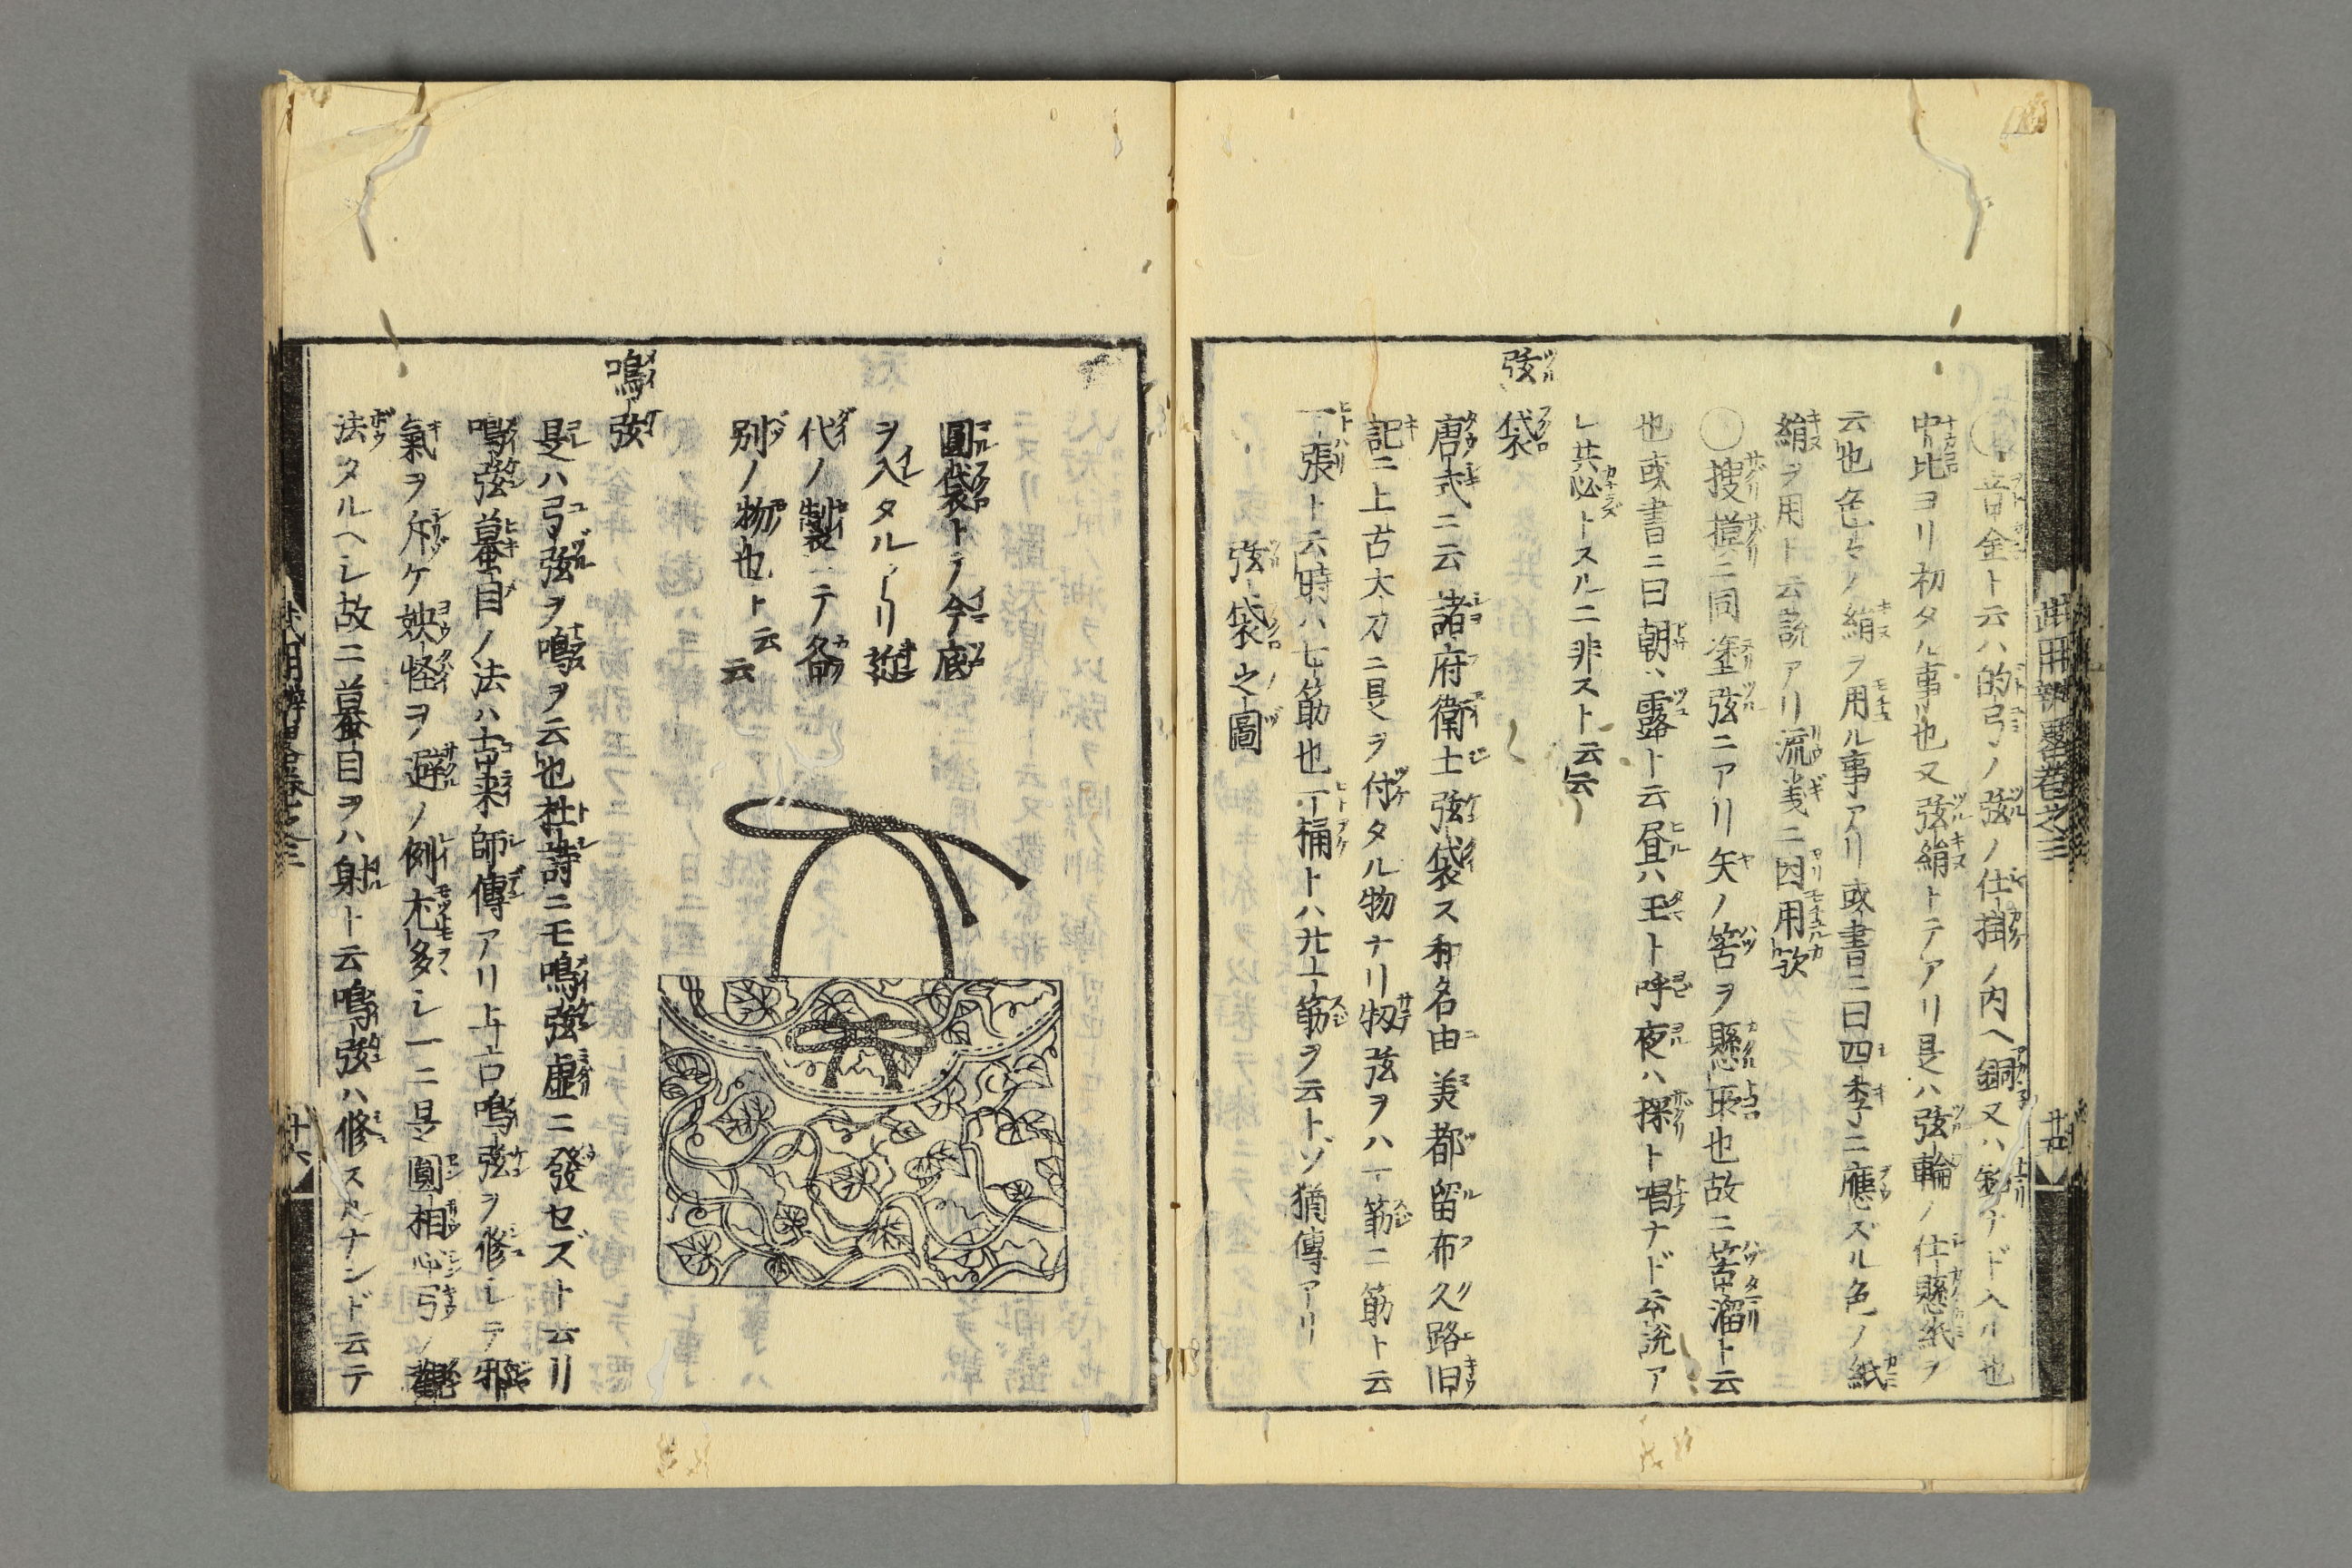 音金ト云ハ的弓ノ弦ノ仕掛ノ内ヘ銅又ハ鍮ナド入ル也
中比ヨリ初タル事也又弦絹トテアリ是ハ弦輪ノ仕懸紙ヲ
云也色々ノ絹ヲ用ル事アリ或書ニ曰四季ニ應ズル色ノ紙
絹ヲ用ト云説アリ流義ニ因用歟
〇搜摸ニ同塗弦ニアリ矢ノ筈ヲ懸ル所也故ニ筈溜ト云
也或書ニ曰朝ハ露ト云昼ハ玉ト呼夜ハ探ト唱ナド云説ア
レ共必トスルニ非スト云云
弦袋
唐式ニ云諸府衛士弦袋ス和名由美都留布久路旧
記ニ上古太刀ニ是ヲ付タル物ナリ扨弦ヲハ一筋二筋ト云
一張ト云時ハ七筋也一桶ト八廿一筋ヲ云トゾ猶傳アリ
弦袋之圖
武用辨畧巻之三
圓袋トテ今底
ヲ入タルアリ近
代ノ製ニテ各
別ノ物也ト云云
鳴弦
是ハ弓弦ヲ鳴ヲ云也杜詩ニモ鳴弦虚ニ發セズト云リ
鳴弦蟇目ノ法ハ古来師傳アリ上古鳴弦ヲ修シテ邪
氣ヲ斥ケ妖怪ヲ避ノ例尤多シ一ニ是圓相心弓ノ観
法タルヘシ故ニ蟇目ヲハ射ト云鳴弦ハ修スルナンド云テ
武用辨畧巻之三
廿六